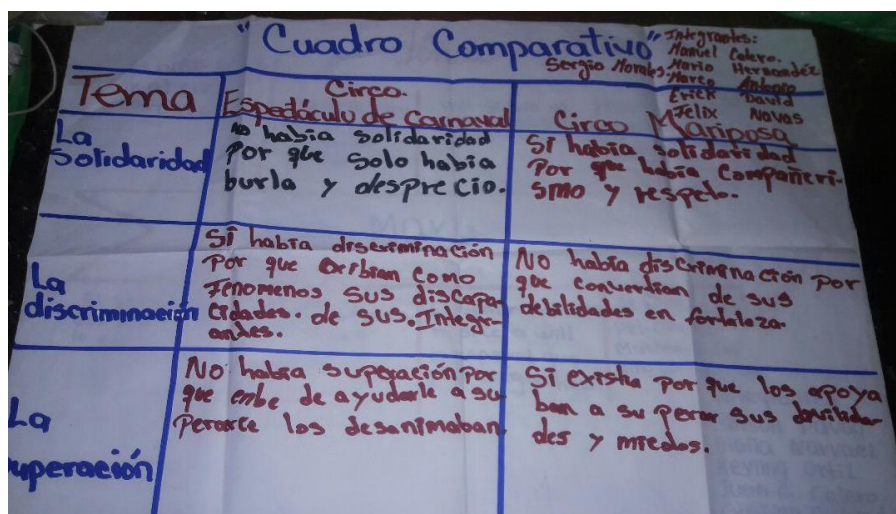 "Cuadro Comparativo"
Integrantes:
Manuel Calero.
Sergio Morales. Mario Hernandéz
Marco Antonio
Erick David
Felix Navas
Tema
Circo.
Espectáculo de Carnaval
Circo Mariposa
La
Solidaridad
no habia solidaridad
Por que Solo habia
burla y desprecio.
Si habia solidaridad
Por que habia Compañeri-
smo y respeto.
La
discriminación
Si habia discriminación
Por que Exibian Como
Fenomenos Sus discapa-
cidades. de sus. Integr-
antes.
No habia discriminación por
que convertian de sus
debilidades en fortaleza.
La
uperación
No habia superación Por
que enbe de ayudarle a su
Perarce los desanimaban.
Si existia Por que los apoya
ban a su perar sus
des y miedos.